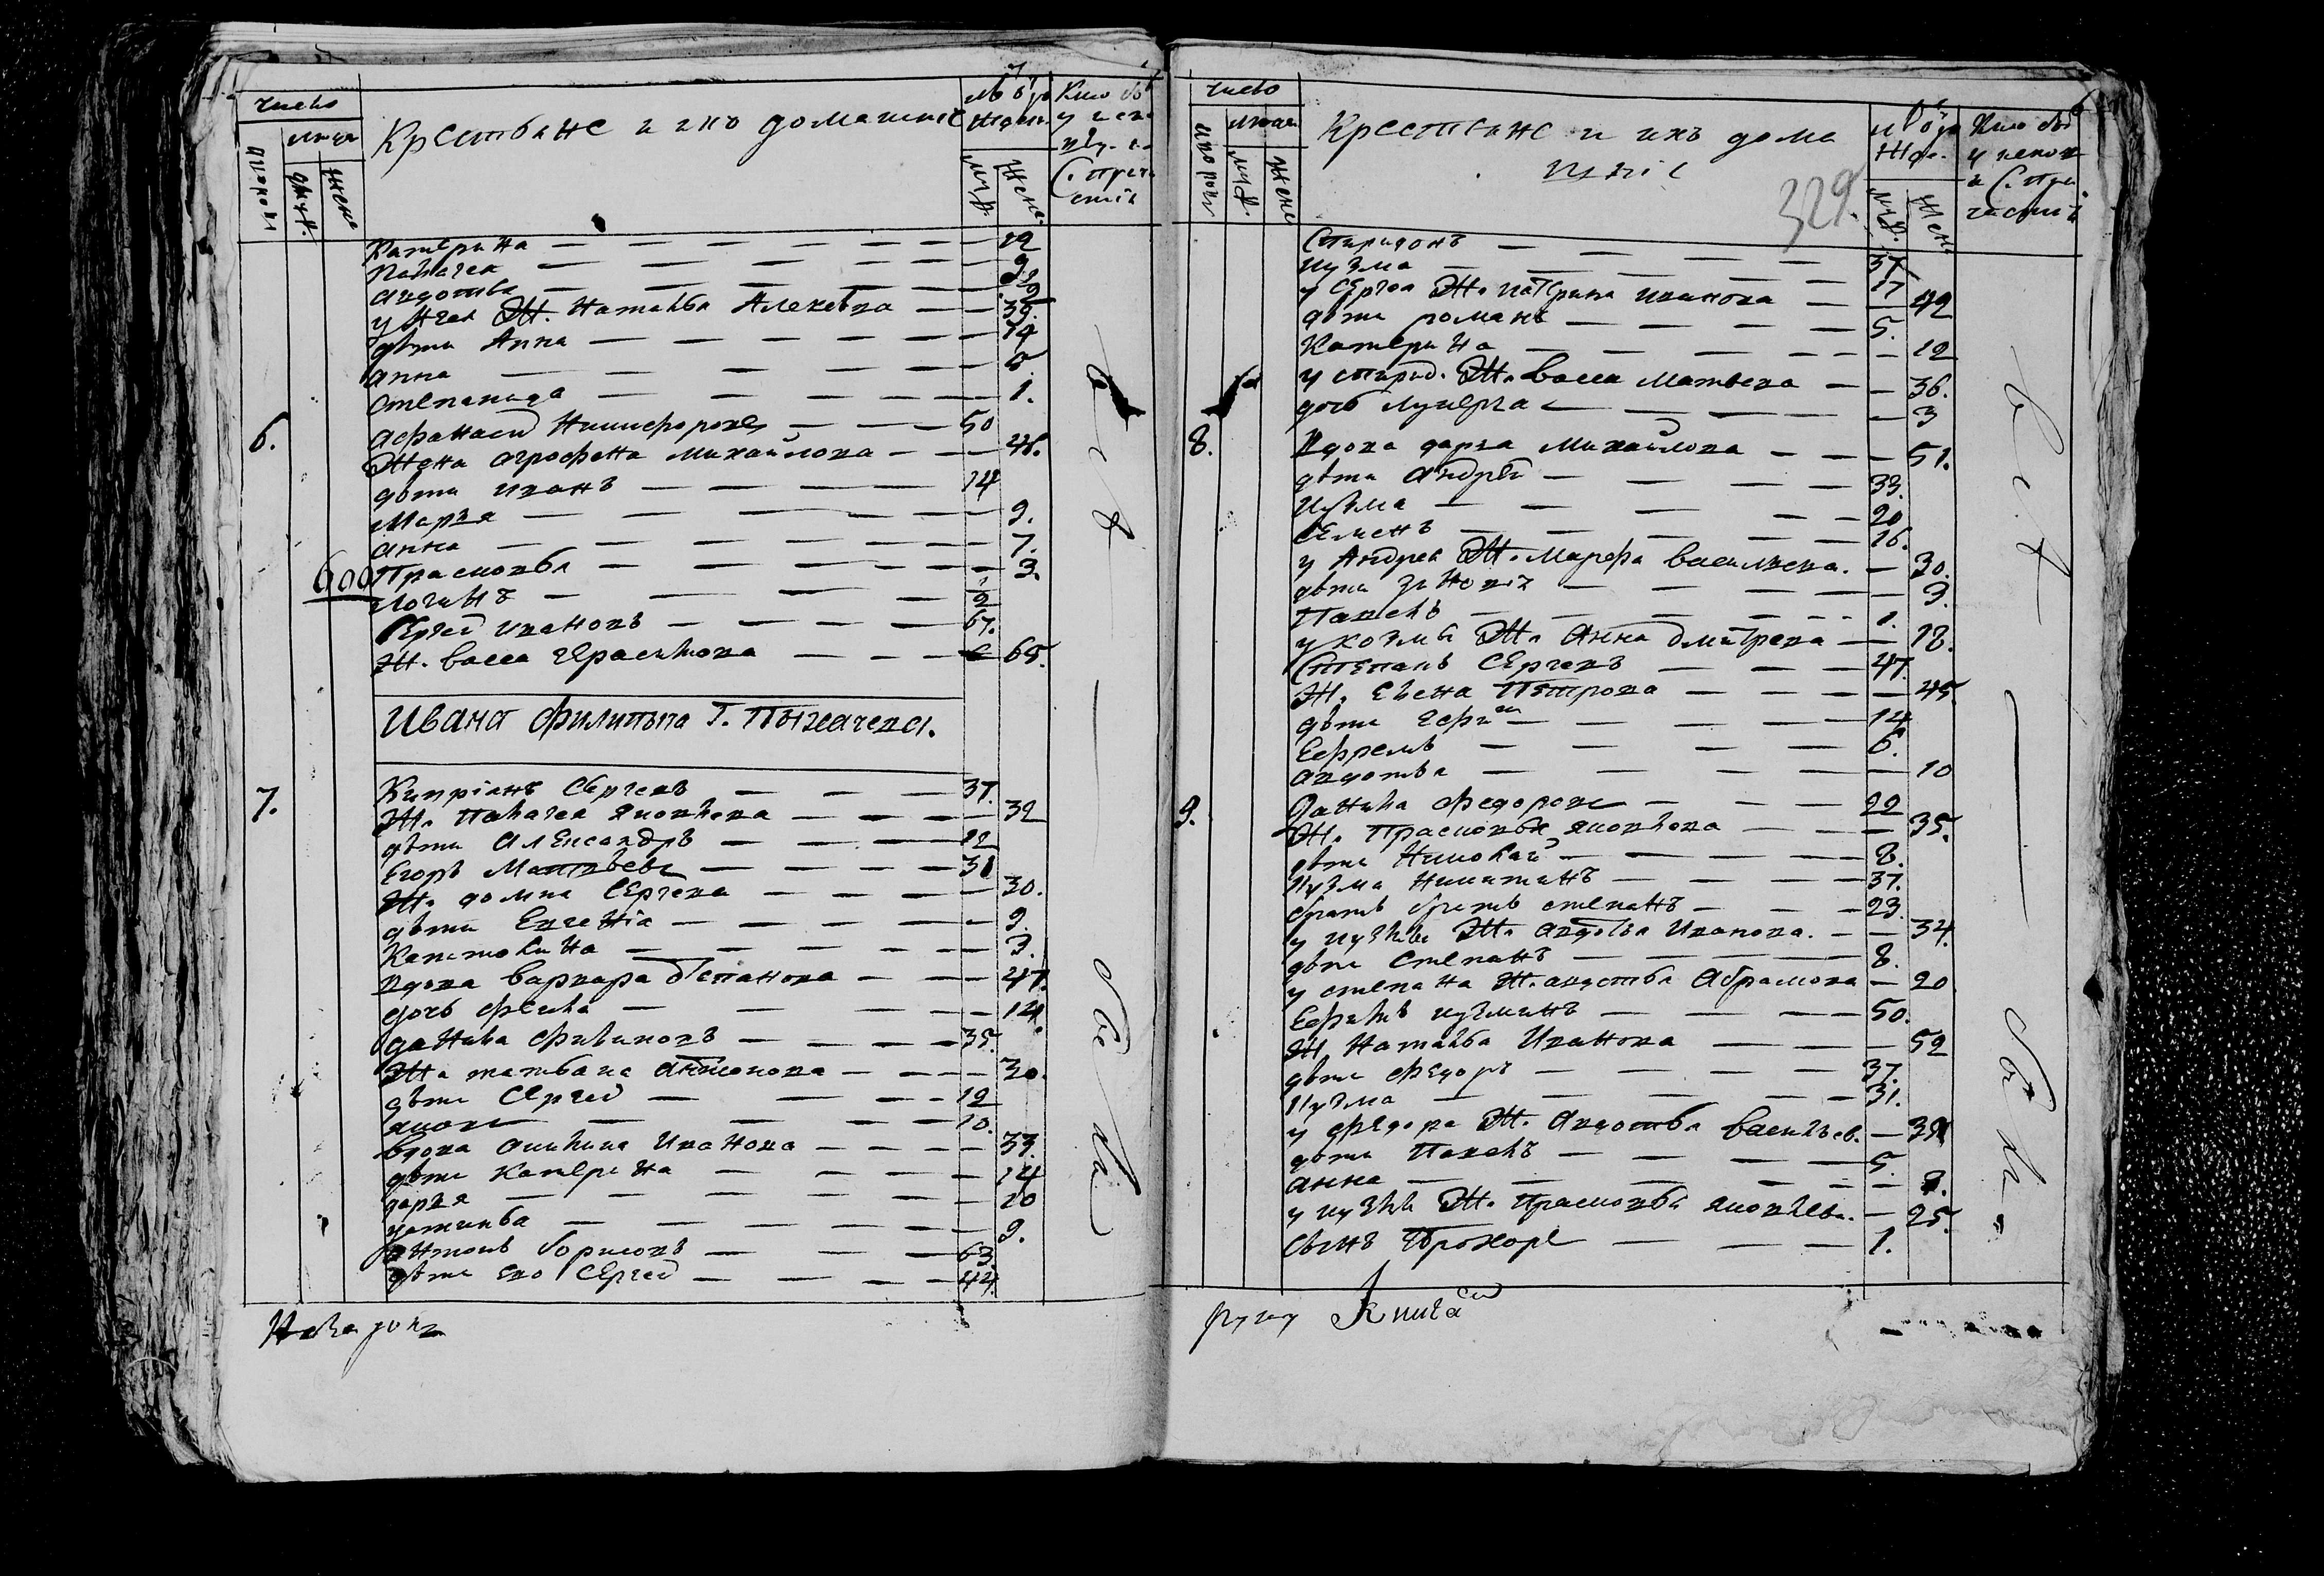 число
людей
дворовъ
муж.
жен.
Крестьяне и ихъ домашніе
лѣта рож.
муж.
жен.
Кто былъ у исповѣди и С. причастія
Катерина — 12
Палагея — 9
Авдотья
у Ягея Ж. Наталья Алекѣева — 35.
дѣти Анна — 14
Анна — 6
Степанида — 1.
6. Афанасей Никифоровъ — 50
Жена Агрофена Михайлова — 48.
дѣти Иванъ — 14
Марья — 9.
Анна — 7.
600 Прасковья — 3.
Логинъ — 2
Сергей Ивановъ — 67.
Ж. Васса Герасимова — 65.
Ивана Филипыча Г. Пыхачева.
7. Кипріянъ Сергеевъ — 37.
Ж. Палагея Яковлева — 32
дѣти Александръ — 12
Егоръ Матвѣевъ — 31
Ж. Домна Сергеева — 30.
дѣти Евгенія — 9.
Капитолина — 3.
вдова Варвара Степанова — 47.
дочь Фекла — 14.
Данила Филиповъ — 35.
Ж. Татьяна Антонова — 30.
дѣти Сергей — 12
Яковъ — 10.
вдова Акилина Иванова — 33.
дѣти Катерина — 14
Дарья — 10
Устинья — 9.
Антонъ Борисовъ — 63.
дѣти его Сергей — 44.
всѣ
были
число
людей
дворовъ
муж.
жен.
Крестьяне и ихъ дома
шніе
329.
рожд.
муж.
жен.
Кто былъ у исповѣ и С. причастія
Спиридонъ — 37
Кузма — 17
у Сергея Ж. Катрина Иванова — 42
дѣти Романъ — 5.
Катерина — 12
у Спирид. Ж. Васса Матвеева — 36.
дочь Лукерья — 3
8. Вдова Дарья Михайлова — 51.
дѣти Андрей — 33.
Кузма — 20
Семенъ — 16.
у Андрея Ж. Марфа Васильева. — 30.
дѣти Зиновія — 3.
Павелъ — 1.
у Козмы Ж. Анна Дмитрева — 18.
Степанъ Сергеевъ — 47.
Ж. Елена Петрова — 45.
дѣти Ефимъ — 14
Ефремъ — 6.
Авдотья — 10
9. Данила Федоровъ — 22
Ж. Прасковья Яковлева — 35.
дѣти Николай — 8.
Кузма Никитинъ — 37.
братъ Степанъ — 23.
у Кузмы Ж. Авдотья Иванова. — 34.
дѣти Степанъ — 8.
у Степана Ж. Авдотья Абрамова — 20
Ефимъ Кузминъ — 50.
Ж Наталья Иванова — 52
дѣти Федоръ — 37.
Кузма — 31.
у Федора Ж. Авдотья Васильев. — 38
дѣти Павелъ — 5.
Анна — 8.
у Кузмы Ж. Прасковья Яковлева. — 25.
сынъ Прохоръ — 1.
всѣ
были
руку